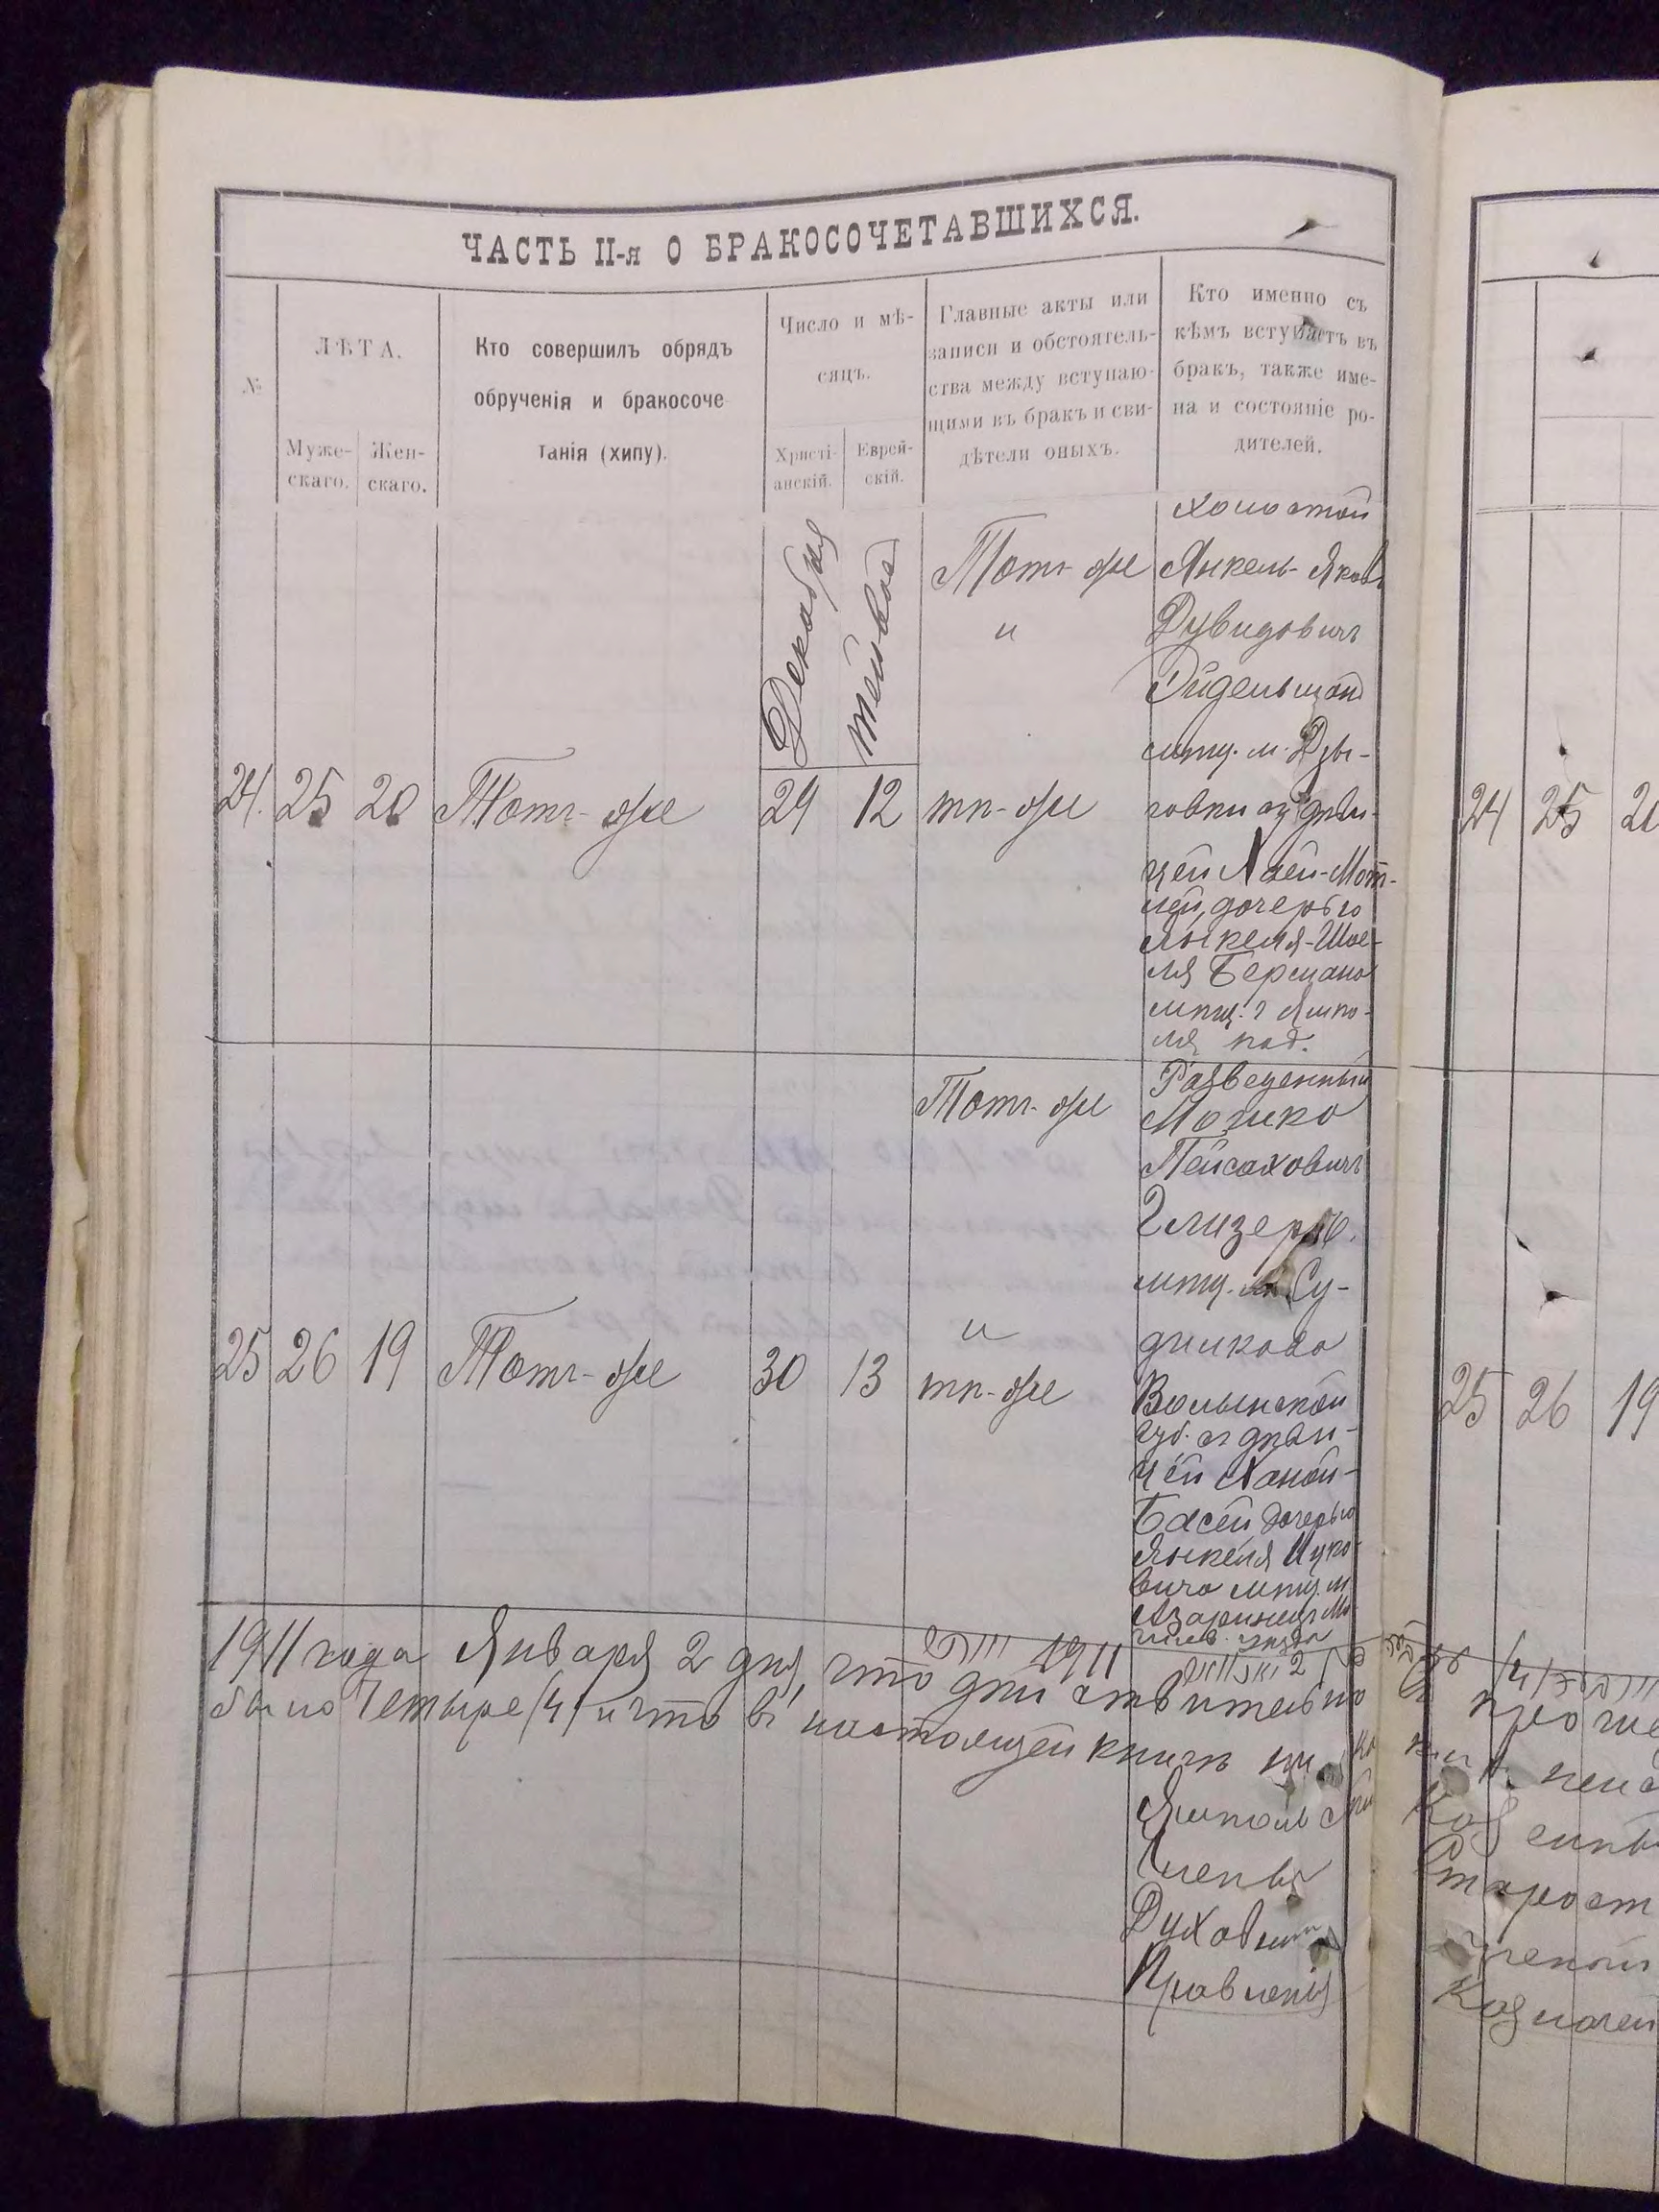 ЧАСТЬ II-я О БРАКОСОЧЕТАВШИХСЯ.
№
ЛѢТА.
Муже-
скаго.
Жен-
скаго.
Кто совершилъ обрядъ
обрученія и бракосоче
танія (хипу).
Число и мѣ-
сяцъ.
Христі-
анскій.
Еврей-
скій.
Главные акты или
записи и обстоятель-
ства между вступаю-
щими въ бракъ и сви-
дѣтели оныхъ.
Кто именно съ
кѣмъ вступаетъ въ
бракъ, также име-
на и состояніе ро-
дителей.
24. 25 20 Тотъ-же
Декабря
29
12
Тотъ-же
и
тѣ-же
холостой
Янкель-Яковъ
Дувидовичъ
мѣщ. м. Дзы-
говки съ дѣви-
цей Хаей-Мот-
лей, дочерью
Янкеля-Шое-
ля Бермана
мѣщ. г Ямпо-
ля под.
25 26 19 Тотъ-же
30 13
Тотъ-же
и
тѣ-же
Разведенный
Мошко
Пейсаховичъ
Глизеръ
мѣщ. м. Су-
дилкова
Волынской
губ. съ дѣви-
цей Ханой-
Басей дочерью
Янкеля Ицко-
вича мѣщ. м
Озаринецъ Мо-
гилев. уѣзда
1911 года Января 2 дня, что дѣйствительно
было Четыре /4/ и что въ настоящей книгѣ
Ямпольск
Члены
Духовнаго
Правленія
24 25 20
25 26 19